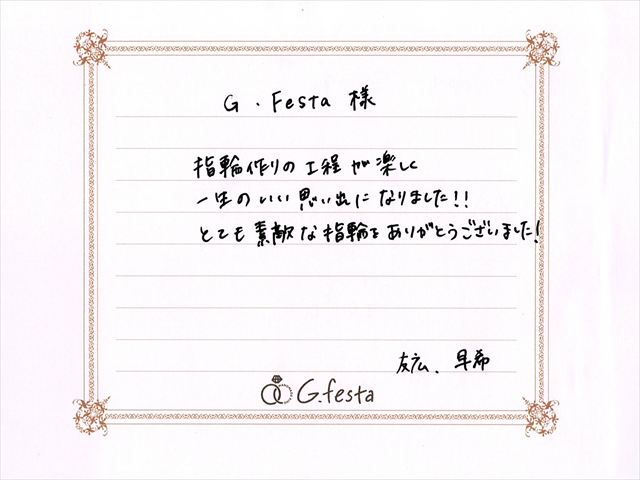 G.Festa 様
指輪作りの工程が楽しく
一生のいい思い出になりました!!
とても素敵な指輪をありがとうございました!
友広、早希
G.festa